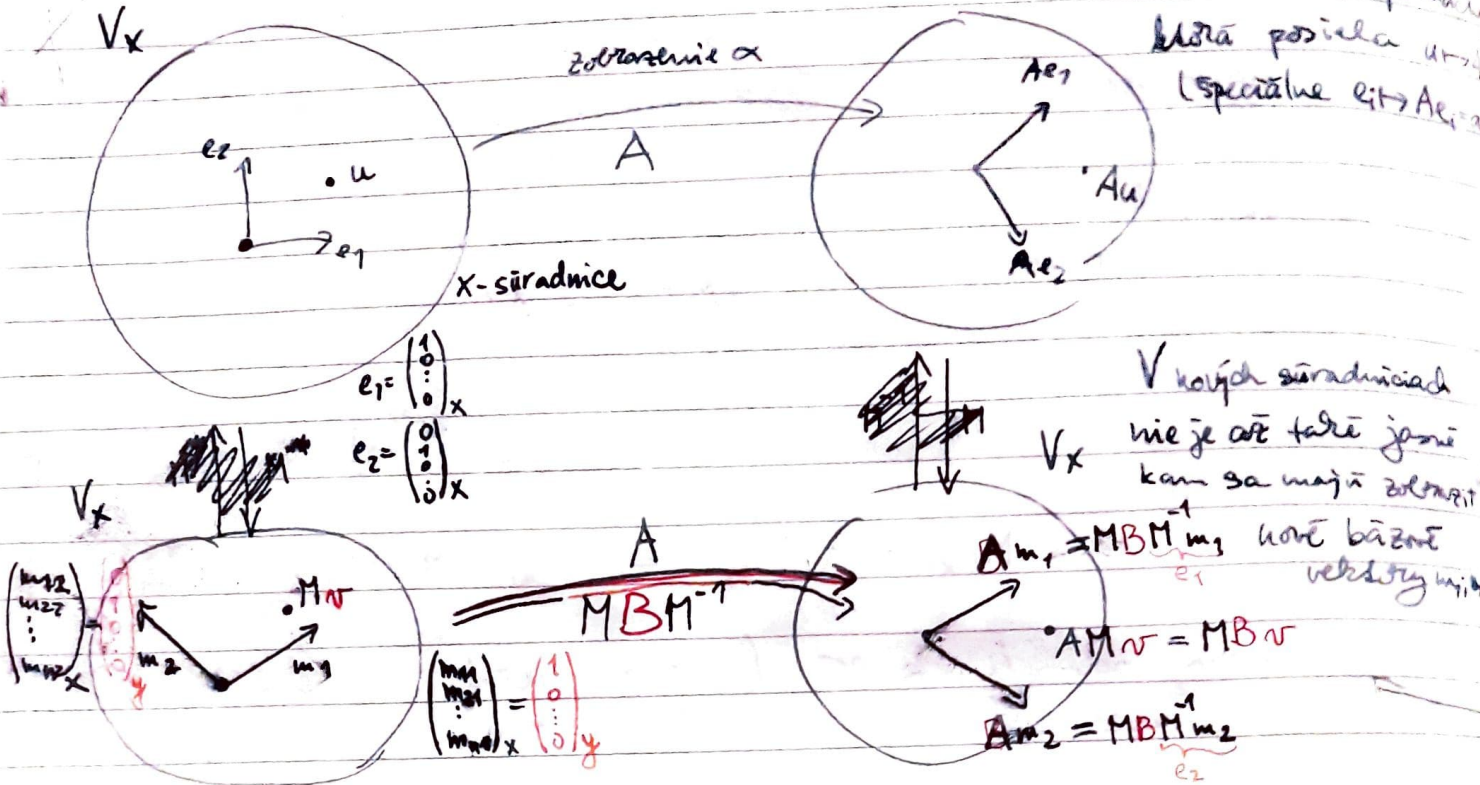 V_x
zobrazenie α
A
e_2
• u
e_1
x-súradnice
Ae_1
Au
Ae_2
ktorá posiela
(špeciálne
e_1 = (1 0 ⋮ 0)_x
e_2 = (0 1 0 ⋮ 0)_x
V nových súradniciach
nie je až také jasné
kam sa majú zobraziť
nové bázové
vektory
V_x
V_x
m_2
m_1
Mv
A
MBM^{-1}
(m_{11} m_{21} ⋮)_x = (1 0 ⋮ 0)_y
Am_1 = MBM^{-1}m_1
e_1
AMv = MBv
Am_2 = MBM^{-1}m_2
e_2